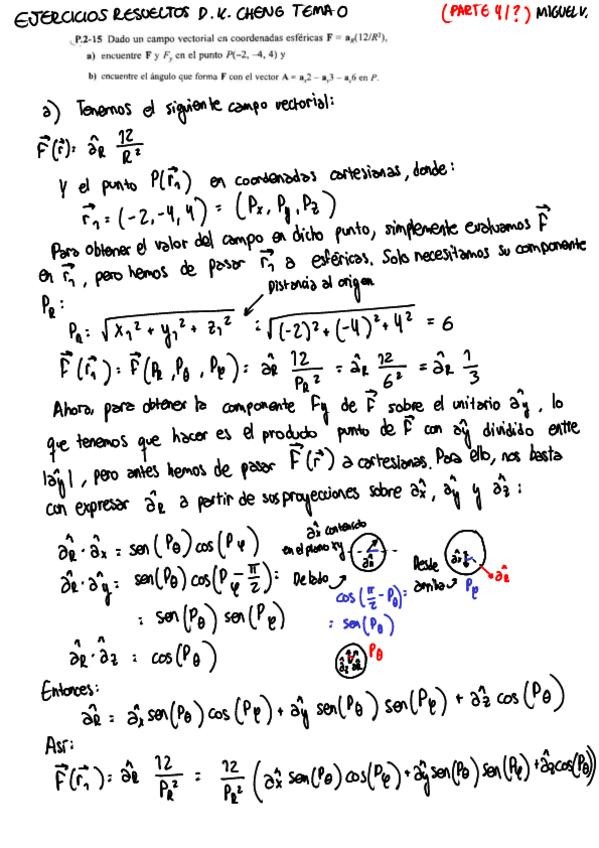 EJERCICIOS RESUELTOS D.K. CHENG TEMA 0 (PARTE 4/?) MIGUEL V.
P.2-15 Dado un campo vectorial en coordenadas esféricas F = a_R(12/R²),
a) encuentre F y F_y en el punto P(-2, -4, 4) y
b) encuentre el ángulo que forma F con el vector A = a_x2 - a_y3 - a_z6 en P.
a) Tenemos el siguiente campo vectorial:
F⃗(r⃗): â_R 12/R²
Y el punto P(r⃗₁) en coordenadas cartesianas, donde:
r⃗₁ = (-2, -4, 4) = (P_x, P_y, P_z)
Para obtener el valor del campo en dicho punto, simplemente evaluamos F⃗
en r⃗₁, pero hemos de pasar r⃗₁ a esféricas. Solo necesitamos su componente
P_R:
Distancia al origen
P_R: √(x₁² + y₁² + z₁²) = √((-2)² + (-4)² + 4²) = 6
F⃗(r⃗₁): F⃗(P_R, P_θ, P_φ): â_R 12/P_R² = â_R 12/6² = â_R 1/3
Ahora, para obtener la componente F_y de F⃗ sobre el unitario â_y, lo
que tenemos que hacer es el producto punto de F⃗ con â_y dividido entre
|â_y|, pero antes hemos de pasar F⃗(r⃗) a cartesianas. Para ello, nos basta
con expresar â_R a partir de sus proyecciones sobre â_x, â_y y â_z:
â_x contenido
en el plano xy
â_R · â_x = sen(P_θ) cos(P_φ)
â_R · â_y: sen(P_θ) cos(P_φ - π/2):
De lado
Desde
arriba
P_φ
â_R
cos(π/2 - P_θ):
: sen(P_θ)
: sen(P_θ) sen(P_φ)
â_R · â_z : cos(P_θ)
P_θ
Entonces:
â_R = â_x sen(P_θ) cos(P_φ) + â_y sen(P_θ) sen(P_φ) + â_z cos(P_θ)
Así:
F⃗(r⃗₁): â_R 12/P_R² = 12/P_R² (â_x sen(P_θ) cos(P_φ) + â_y sen(P_θ) sen(P_φ) + â_z cos(P_θ))